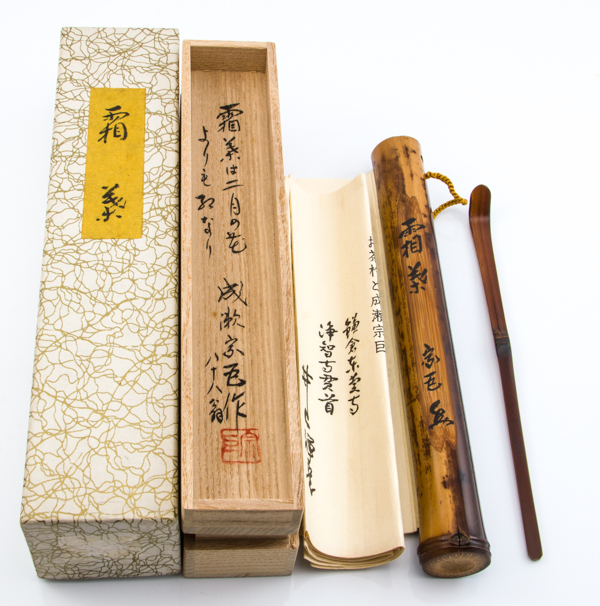 霜葉
霜葉は二月の花
よりも紅なり
成瀬宗巨作
八十八翁
お茶杓と成瀬宗巨
鎌倉東慶寺
浄智寺貫首
霜葉
宗巨